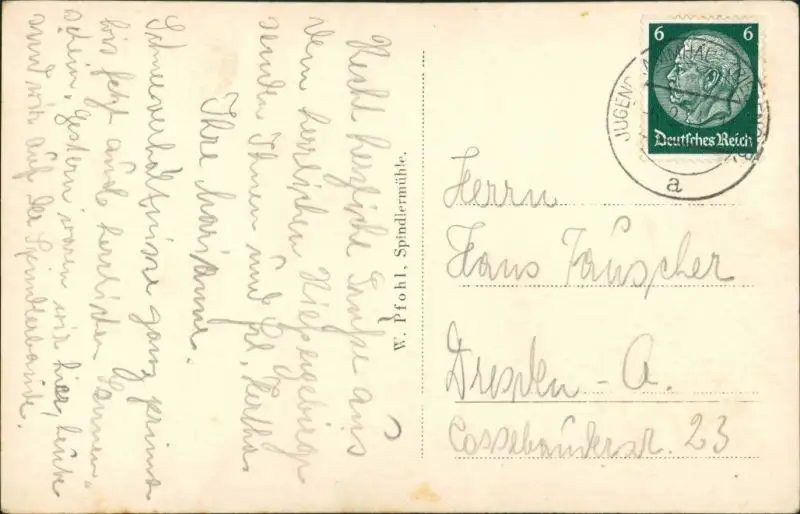 Recht herzliche Grüße aus
dem herrlichen Riesengebirge
senden Ihnen und Frl. Hertha
Ihre Marianne.
Schneeverhältnisse ganz prima
bis jetzt auch herrlichen Sonnen-
schein. Gestern waren wir hier, heute
sind wir auf der Spindlerbaude.
W. Pfohl, Spindlermühle.
6 6
Deutsches Reich
JUGENDKAMM
a
Herrn
Hans Täuscher
Dresden - A.
Cossebauderstr. 23